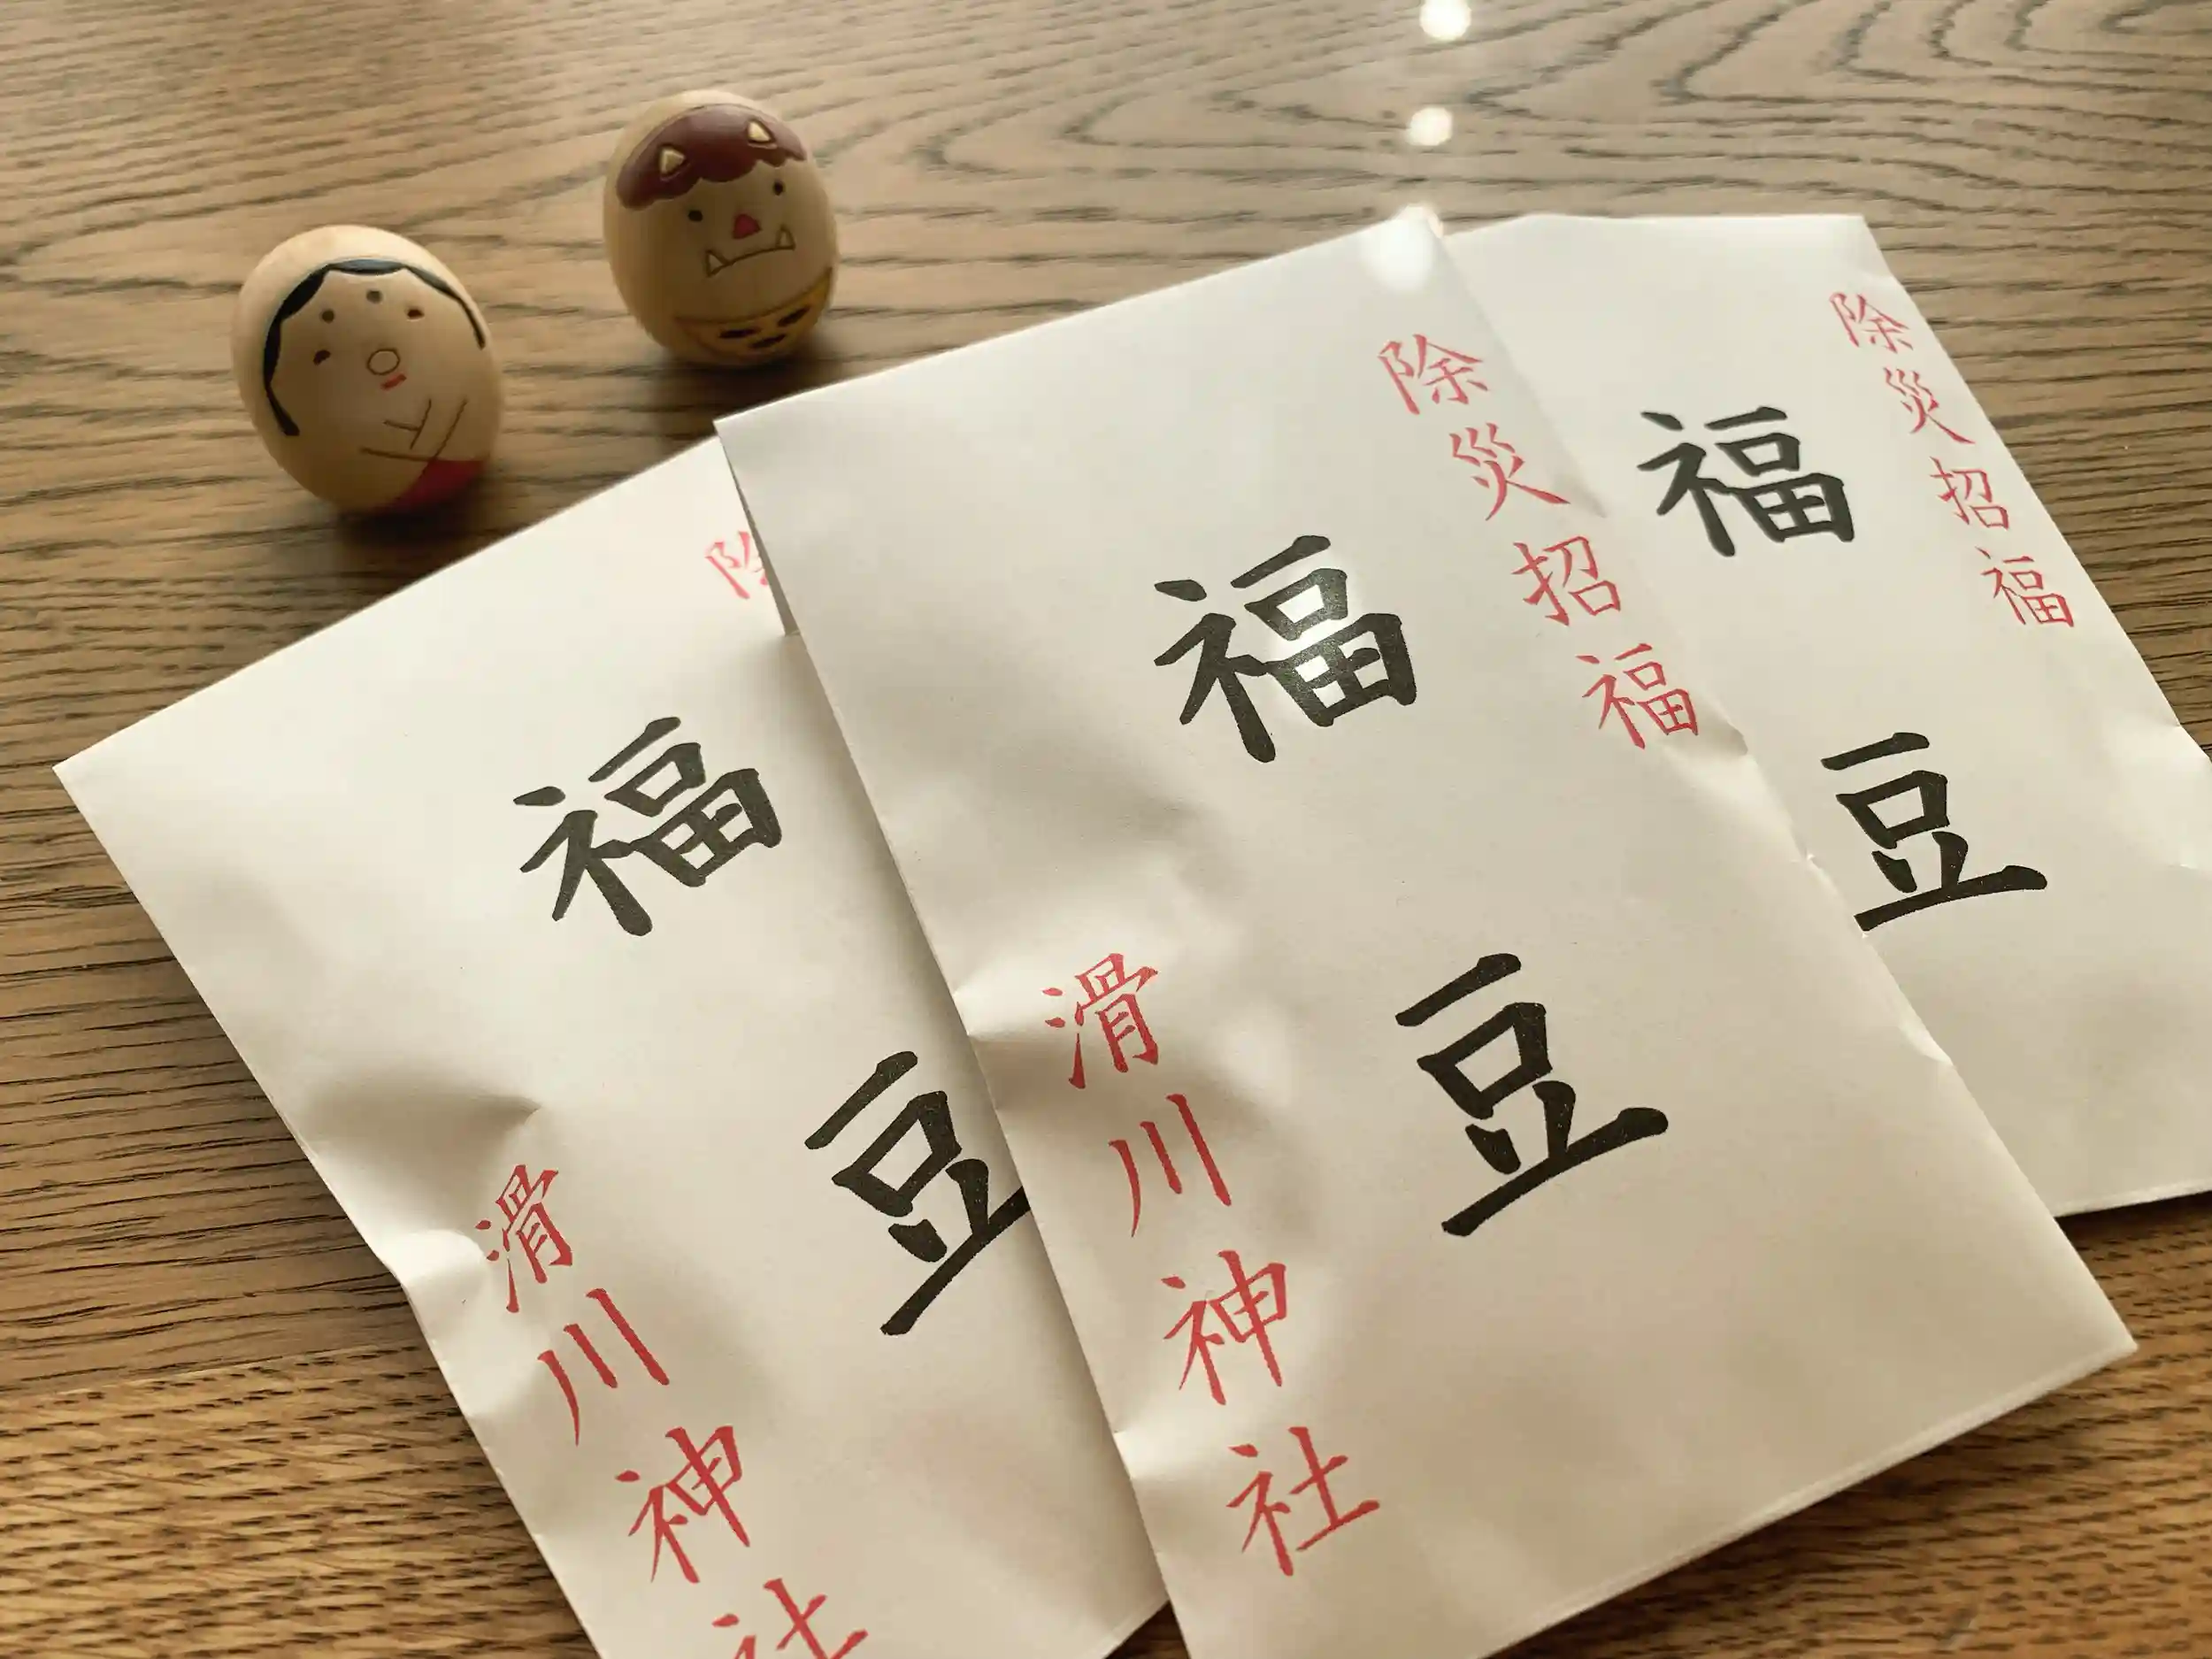 福豆
滑川神社
除災招福
福豆
滑川神社
除災招福
福豆